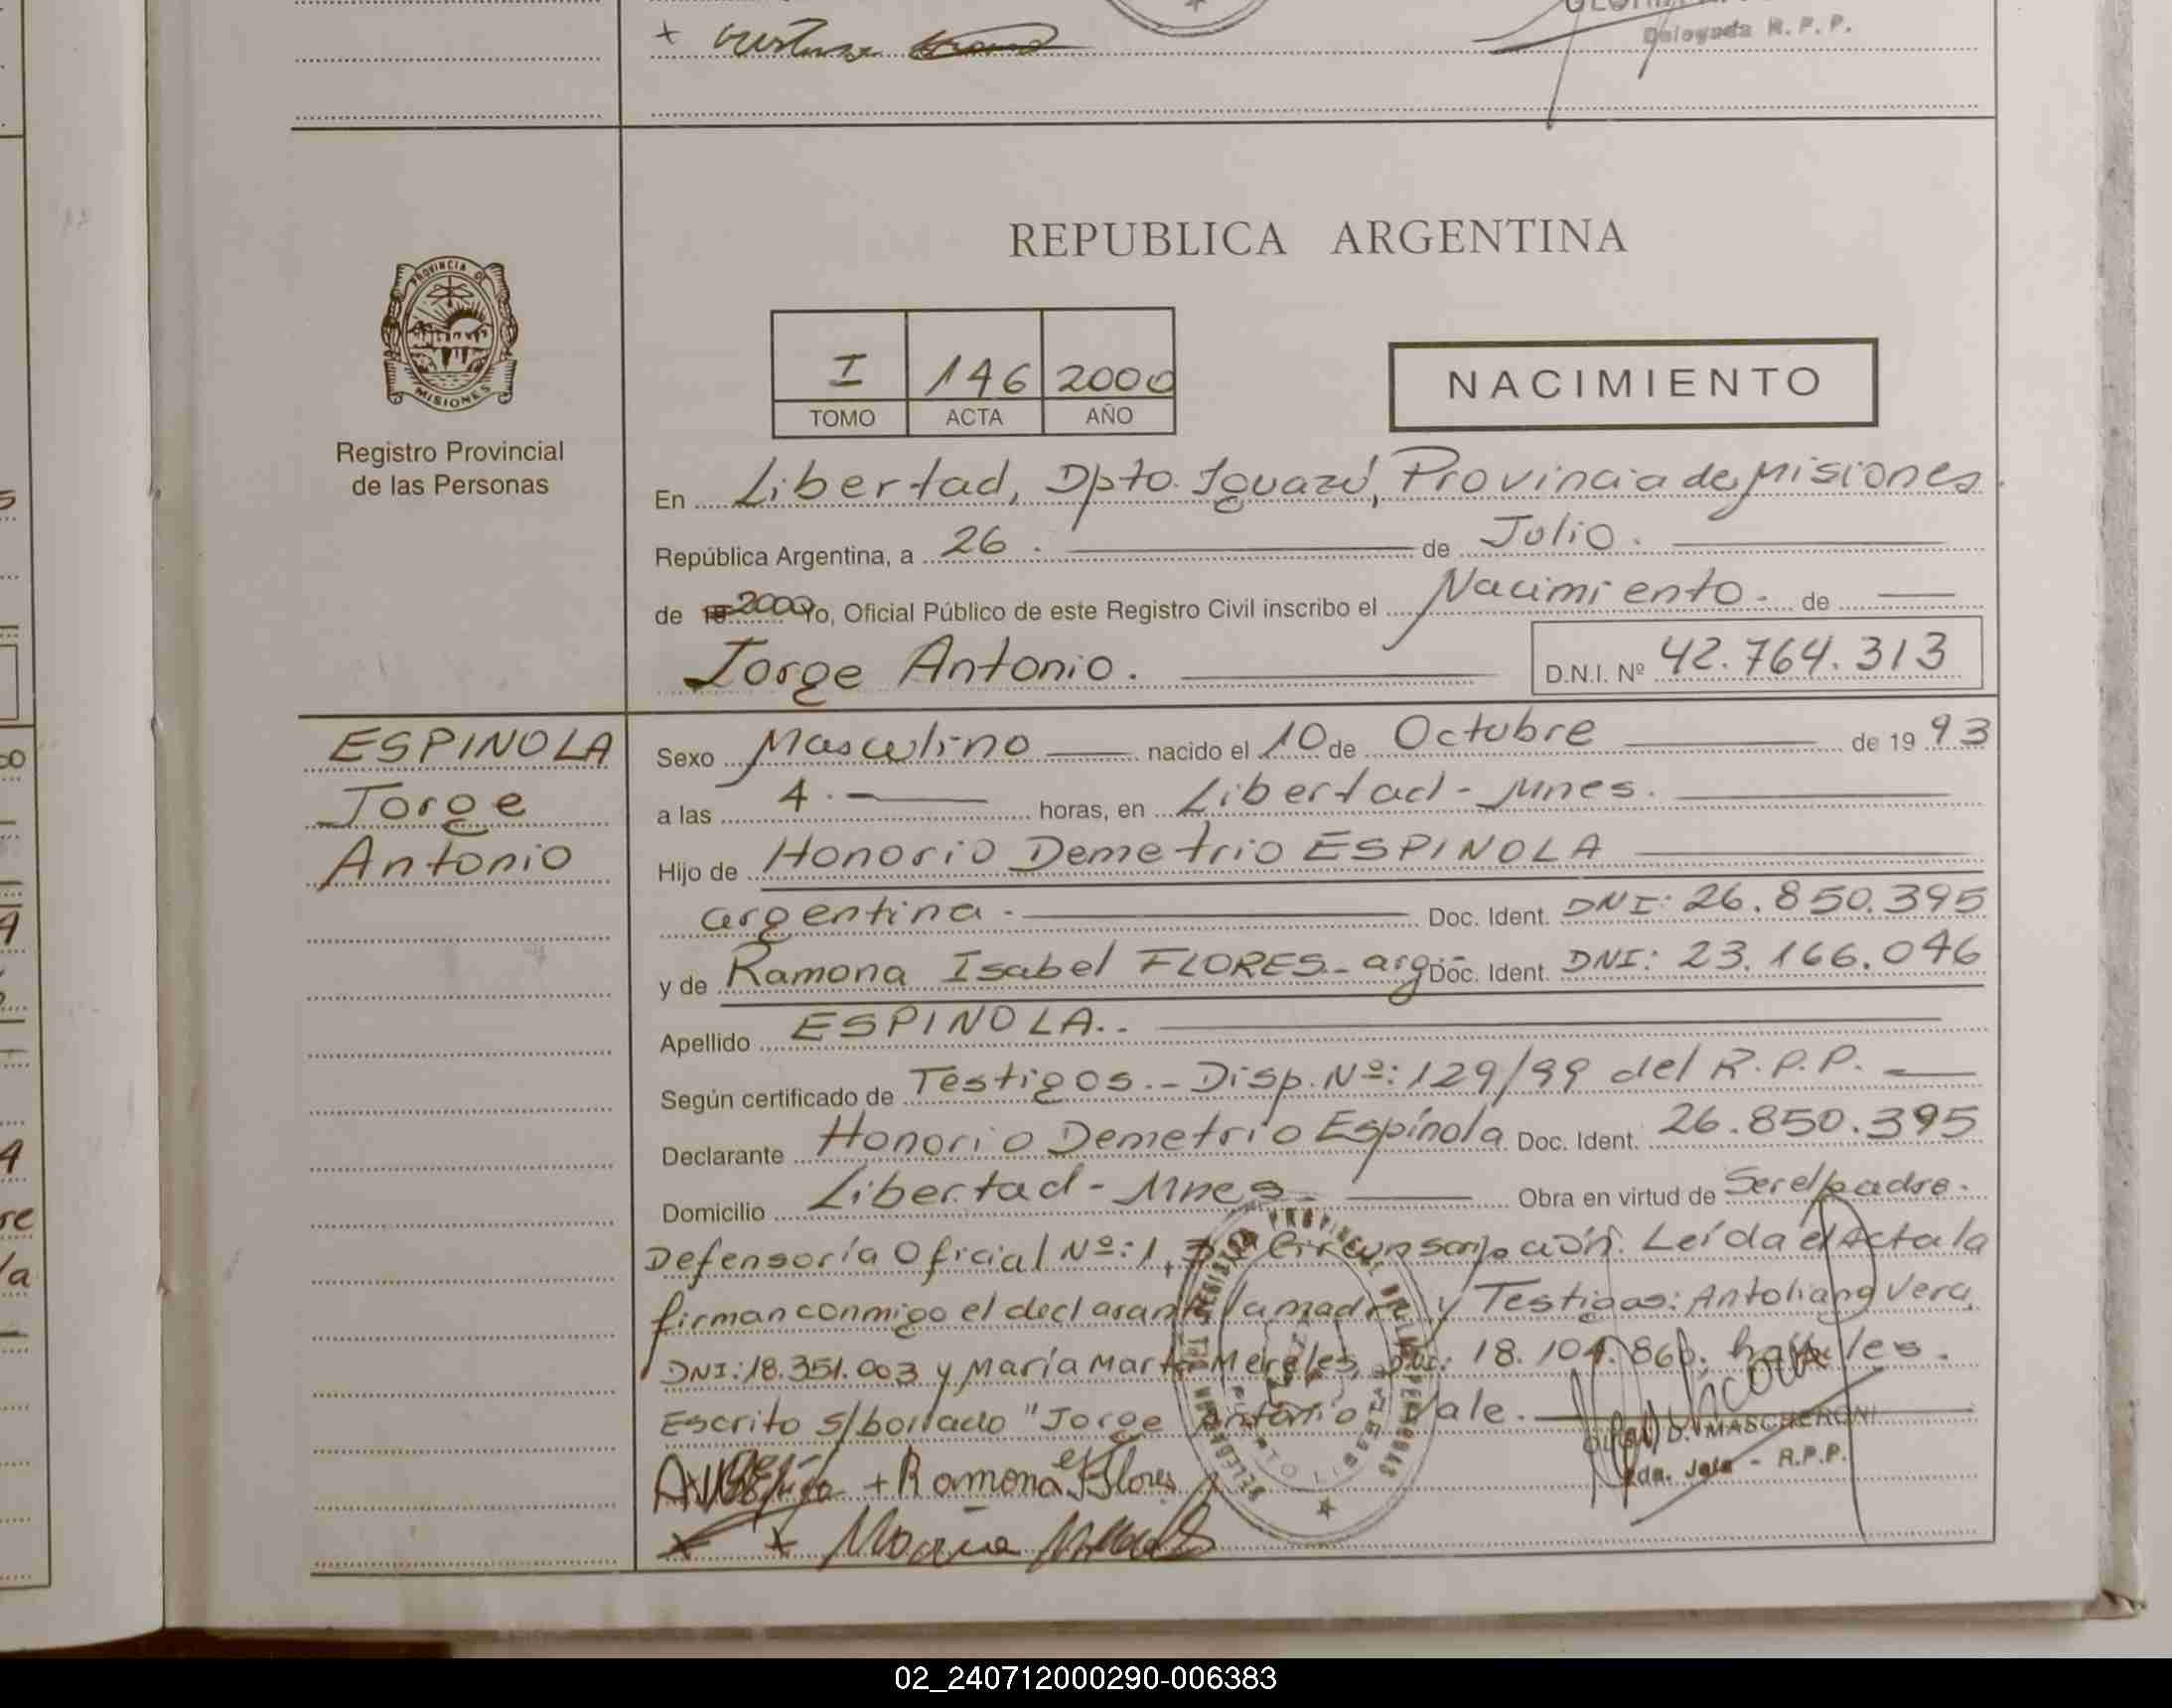 Delegada R. P. P.
PROVINCIA DE
MISIONES
Registro Provincial
de las Personas
REPUBLICA ARGENTINA
I 146 2000
TOMO ACTA AÑO
NACIMIENTO
En Libertad, Dpto. Iguazú, Provincia de Misiones.
República Argentina, a 26. de Julio.
de 19 2000 Yo, Oficial Público de este Registro Civil inscribo el Nacimiento. de
Jorge Antonio. D.N.I. Nº 42.764.313
ESPINOLA
Jorge
Antonio
Sexo Masculino nacido el 10 de Octubre de 1993
a las 4.- horas, en Libertad - Mnes.
Hijo de Honorio Demetrio ESPINOLA
argentina.- Doc. Ident. DNI: 26.850.395
y de Ramona Isabel FLORES - arg. Doc. Ident. DNI: 23.166.046
Apellido ESPINOLA..
Según certificado de Testigos.- Disp. Nº: 129/99 del R.P.P.
Declarante Honorio Demetrio Espínola Doc. Ident. 26.850.395
Domicilio Libertad - Mnes. Obra en virtud de Ser el padre.
Defensoría Oficial Nº: 1, Circunscripción. Leída el Acta la
firman conmigo el declarante, la madre y Testigos: Antoliana Vera,
DNI: 18.351.003 y María Marta Mereles, DNI: 18.104.860, hábiles.
Escrito s/borrado "Jorge Antonio" Vale.
+ Ramona Flores
D. MASCHERONI
2da. Jefe - R.P.P.
x + Maria
02_240712000290-006383